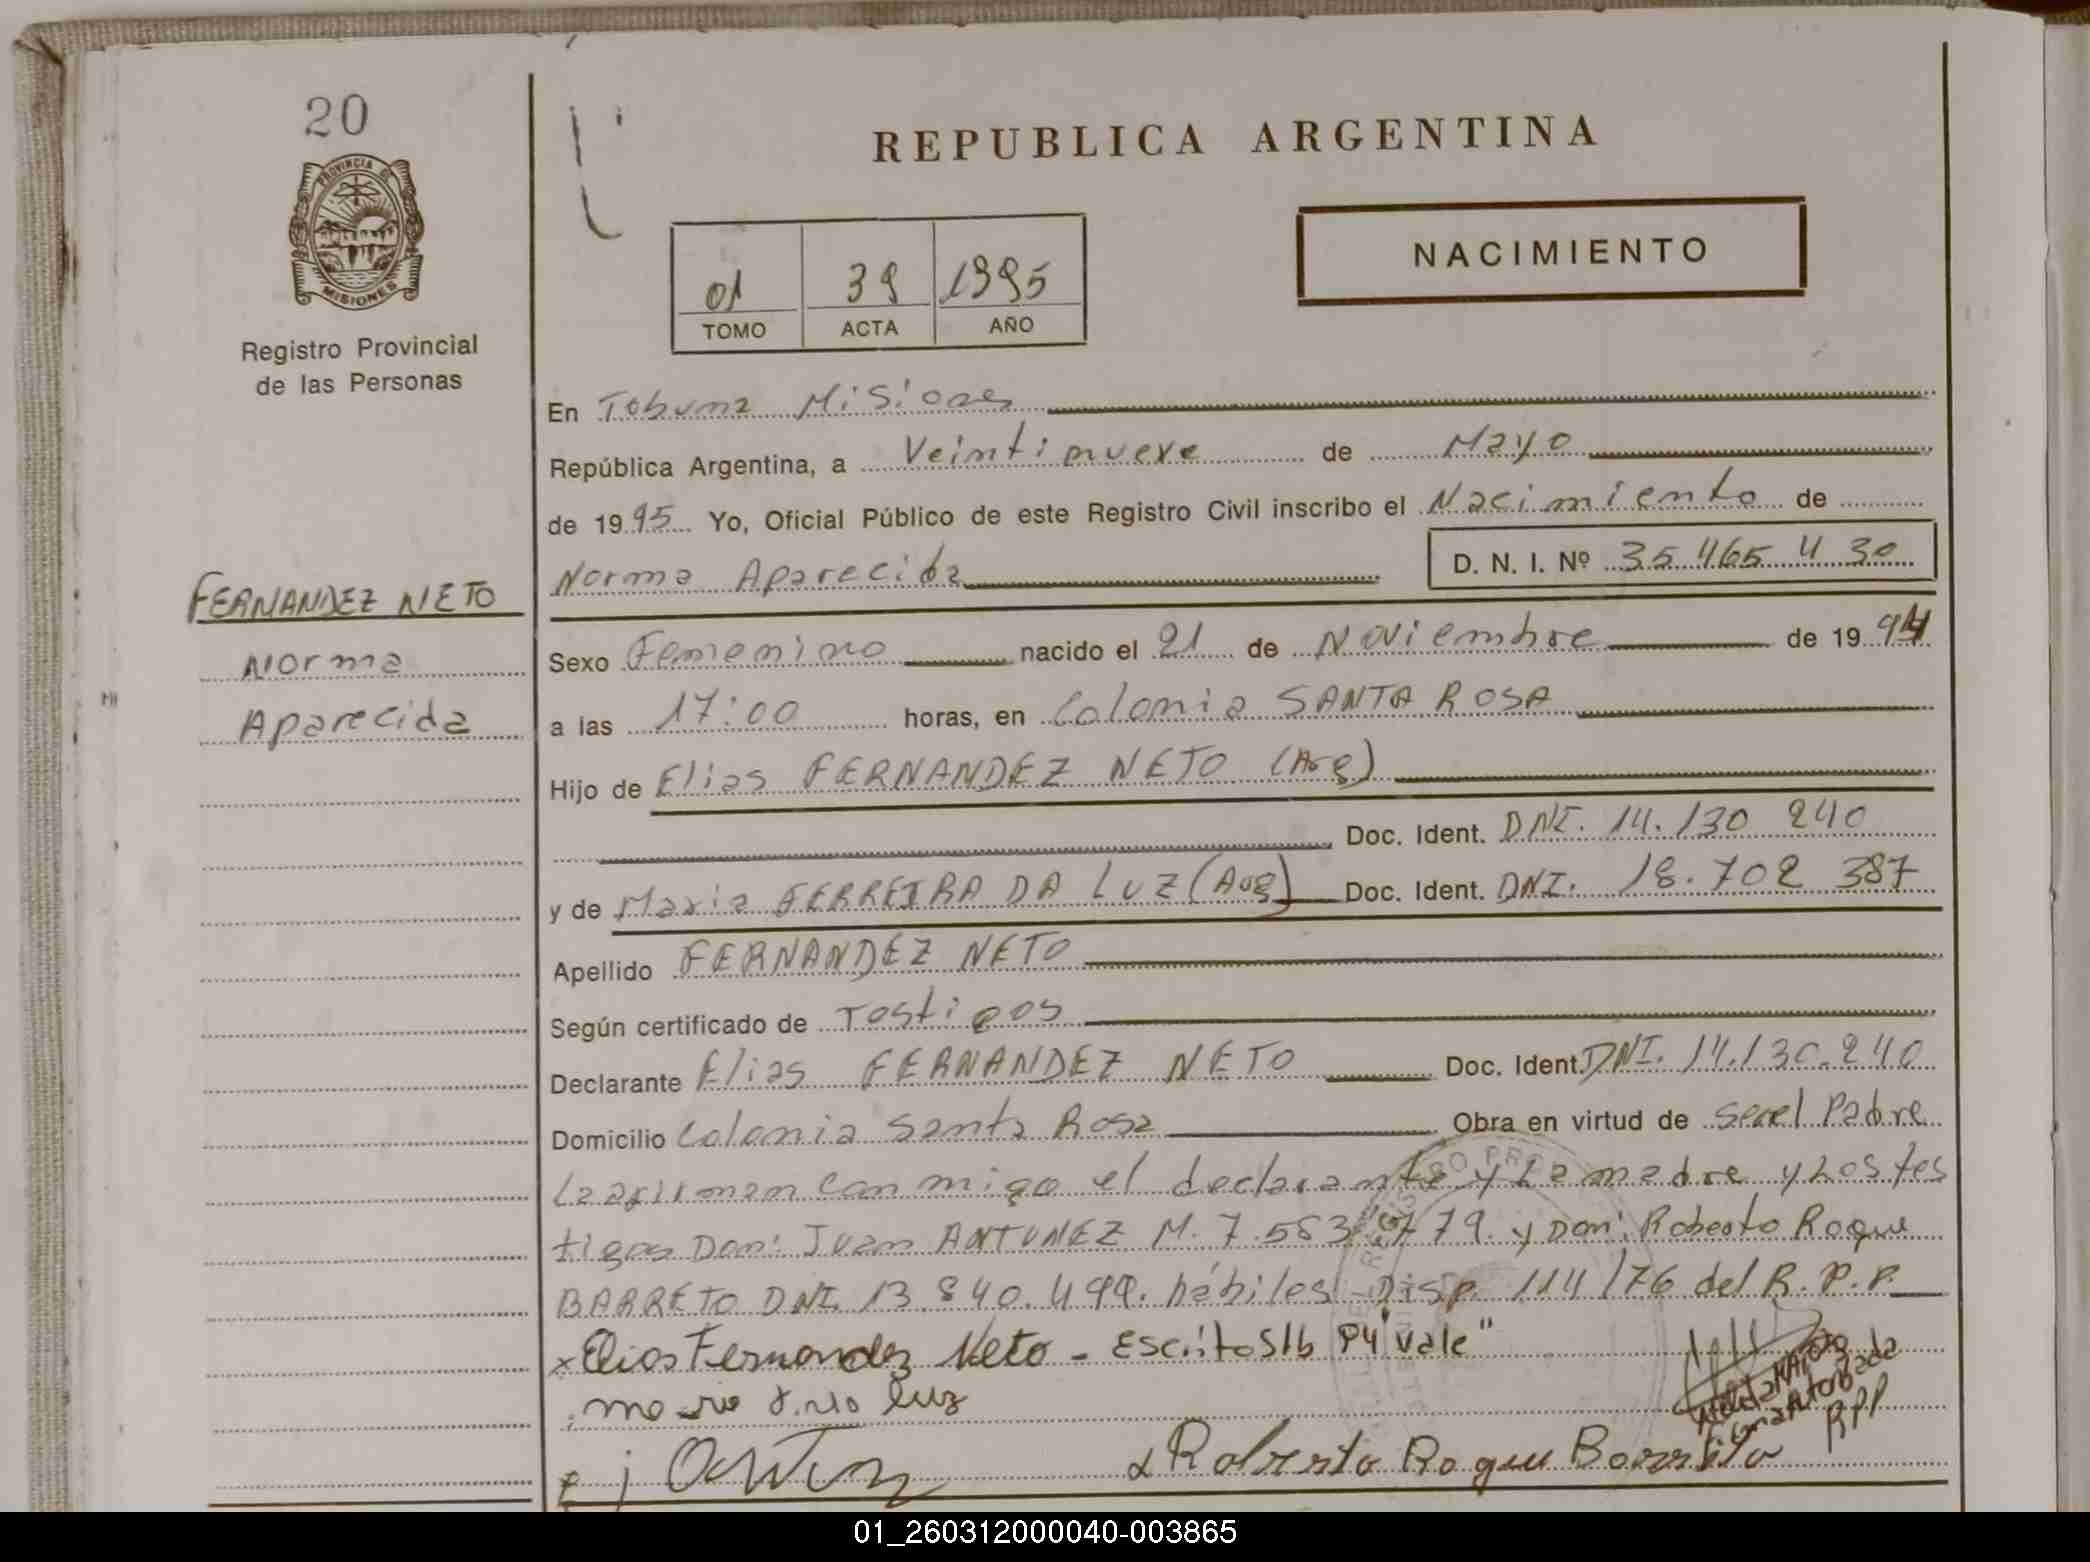 20
REPUBLICA ARGENTINA
NACIMIENTO
PROVINCIA DE
MISIONES
Registro Provincial
de las Personas
01 39 1995
TOMO ACTA AÑO
En Tobuna Misiones
República Argentina, a Veintinueve de Mayo
de 1995 Yo, Oficial Público de este Registro Civil inscribo el Nacimiento de
Norma Aparecida D. N. I. Nº 35.465.430
FERNANDEZ NETO
Norma
Aparecida
Sexo Femenino nacido el 21 de Noviembre de 1994
a las 17:00 horas, en Colonia SANTA ROSA
Hijo de Elias FERNANDEZ NETO (Arg)
Doc. Ident. DNI. 14.130 240
y de Maria FERREIRA DA LUZ (Arg) Doc. Ident. DNI. 18.702 387
Apellido FERNANDEZ NETO
Según certificado de Testigos
Declarante Elias FERNANDEZ NETO Doc. Ident. DNI. 14.130.240
Domicilio Colonia Santa Rosa Obra en virtud de ser el Padre
Leo firman conmigo el declarante y La madre y Los tes
tigos Don: Juan ANTUNEZ M. 7.583. 779. y Don: Roberto Roque
BARRETO DNI. 13.840.499. hábiles Disp. 114/76 del R.P.P.
x Elias Fernandez Neto - Escrito S/b 94 "vale"
luz
Roberto Roque
Firma Autorizada
RPP
01_260312000040-003865